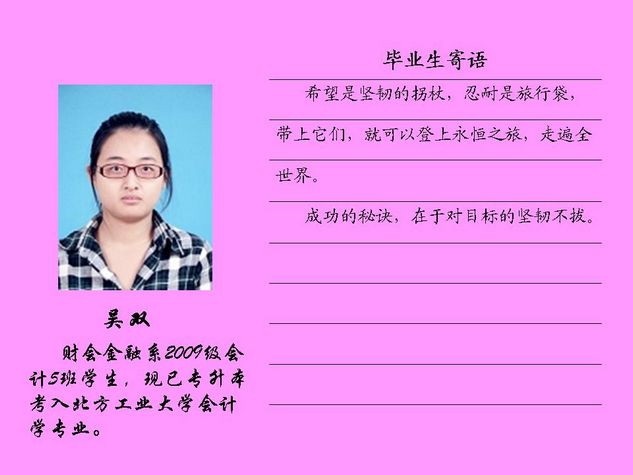 毕业生寄语
希望是坚韧的拐杖，忍耐是旅行袋，
带上它们，就可以登上永恒之旅，走遍全
世界。
成功的秘诀，在于对目标的坚韧不拔。
吴双
财会金融系2009级会
计5班学生，现已专升本
考入北方工业大学会计
学专业。